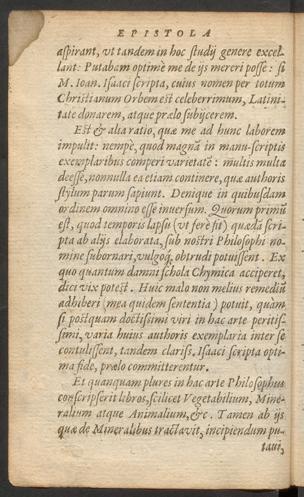 EPISTOLA
aspirant, vt tandem in hoc studij genere excel-
lant: Putabam optimè me de ijs mereri posse: si
M. Ioan. Isaaci scripta, cuius nomen per totum
Christianum Orbem est celeberrimum, Latini-
tate donarem, atque prælo subijcerem.
Est & alia ratio, quæ me ad hunc laborem
impulit: nempè, quod magnã in manu-scriptis
exemplaribus comperi varietatē: multis multa
deesse, nonnulla ea etiam continere, quæ authoris
stylum parum sapiunt. Denique in quibusdam
ordinem omnino esse inuersum. Quorum primũ
est, quod temporis lapsu (vt ferè fit) quædã scri-
pta ab alijs elaborata, sub nostri Philosophi no-
mine subornari, vulgoq́; obtrudi potuissent. Ex
quo quantum damni schola Chymica acciperet,
dici vix potest. Huic malo non melius remediũ
adhiberi (mea quidem sententia) potuit, quàm
si postquam doctissimi viri in hac arte peritis-
simi, varia huius authoris exemplaria inter se
contulissent, tandem clariss. Isaaci scripta opti-
ma fide, prælo committerentur.
Et quanquam plures in hac arte Philosophus
conscripserit libros, scilicet Vegetabilium, Mine-
ralium atque Animalium, &c. Tamen ab ijs
quæ de Mineralibus tractauit, incipiendum pu-
taui,